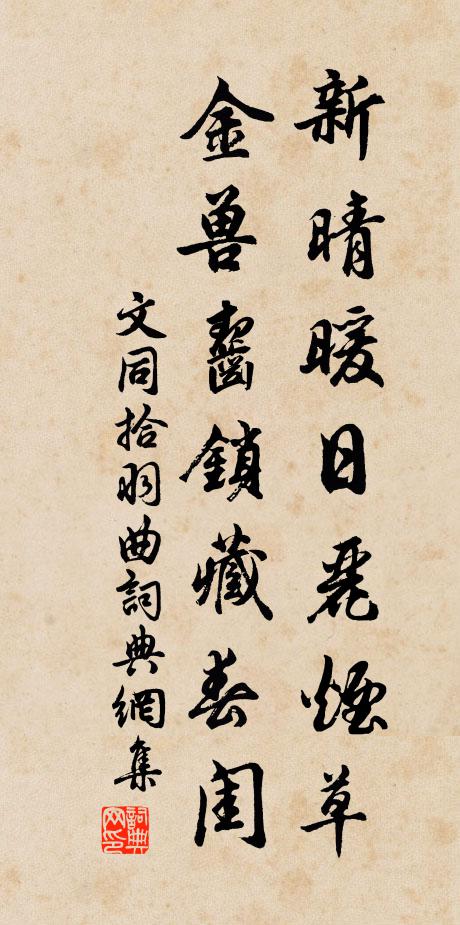 新晴暖日麗煙草
金兽齧鎖藏春閨
文同拾羽曲詞典網集
詞典网印